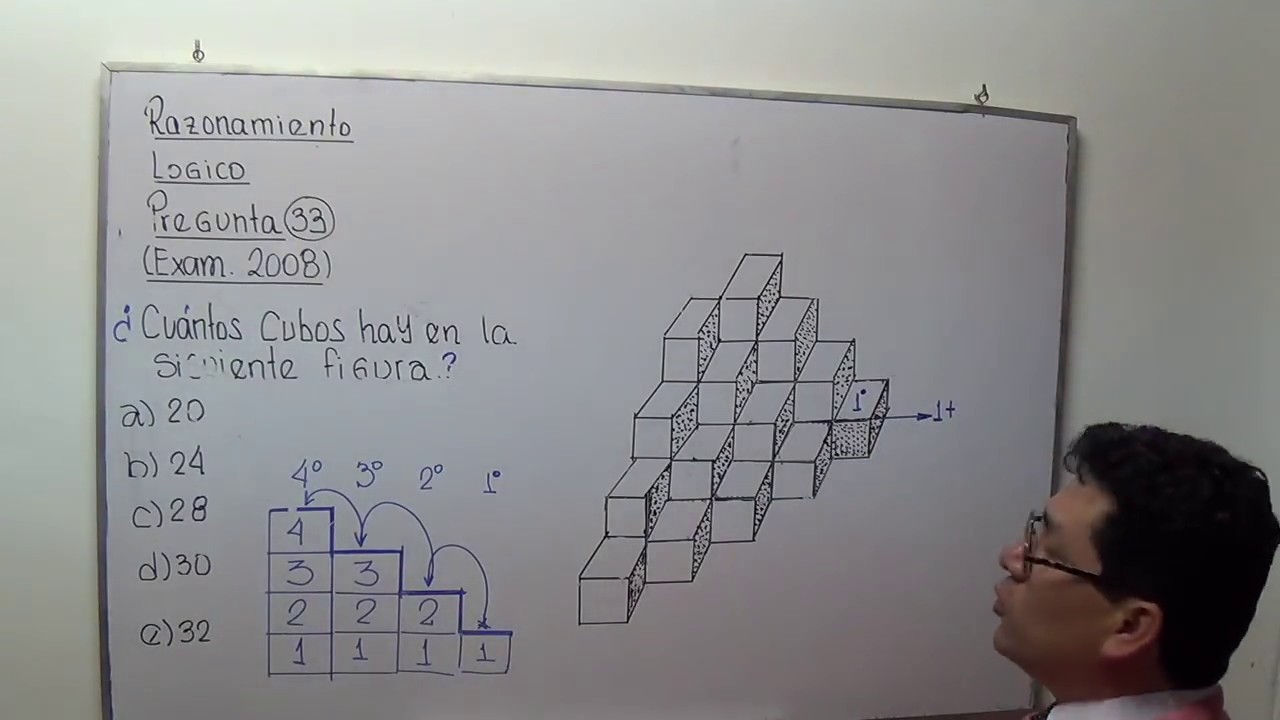 Razonamiento
Logico
Pregunta 33
(Exam. 2008)
¿Cuántos Cubos hay en la
siguiente figura.?
a) 20
b) 24
c) 28
d) 30
e) 32
4° 3° 2° 1°
4
3 3
2 2 2
1 1 1 1
1°
1+